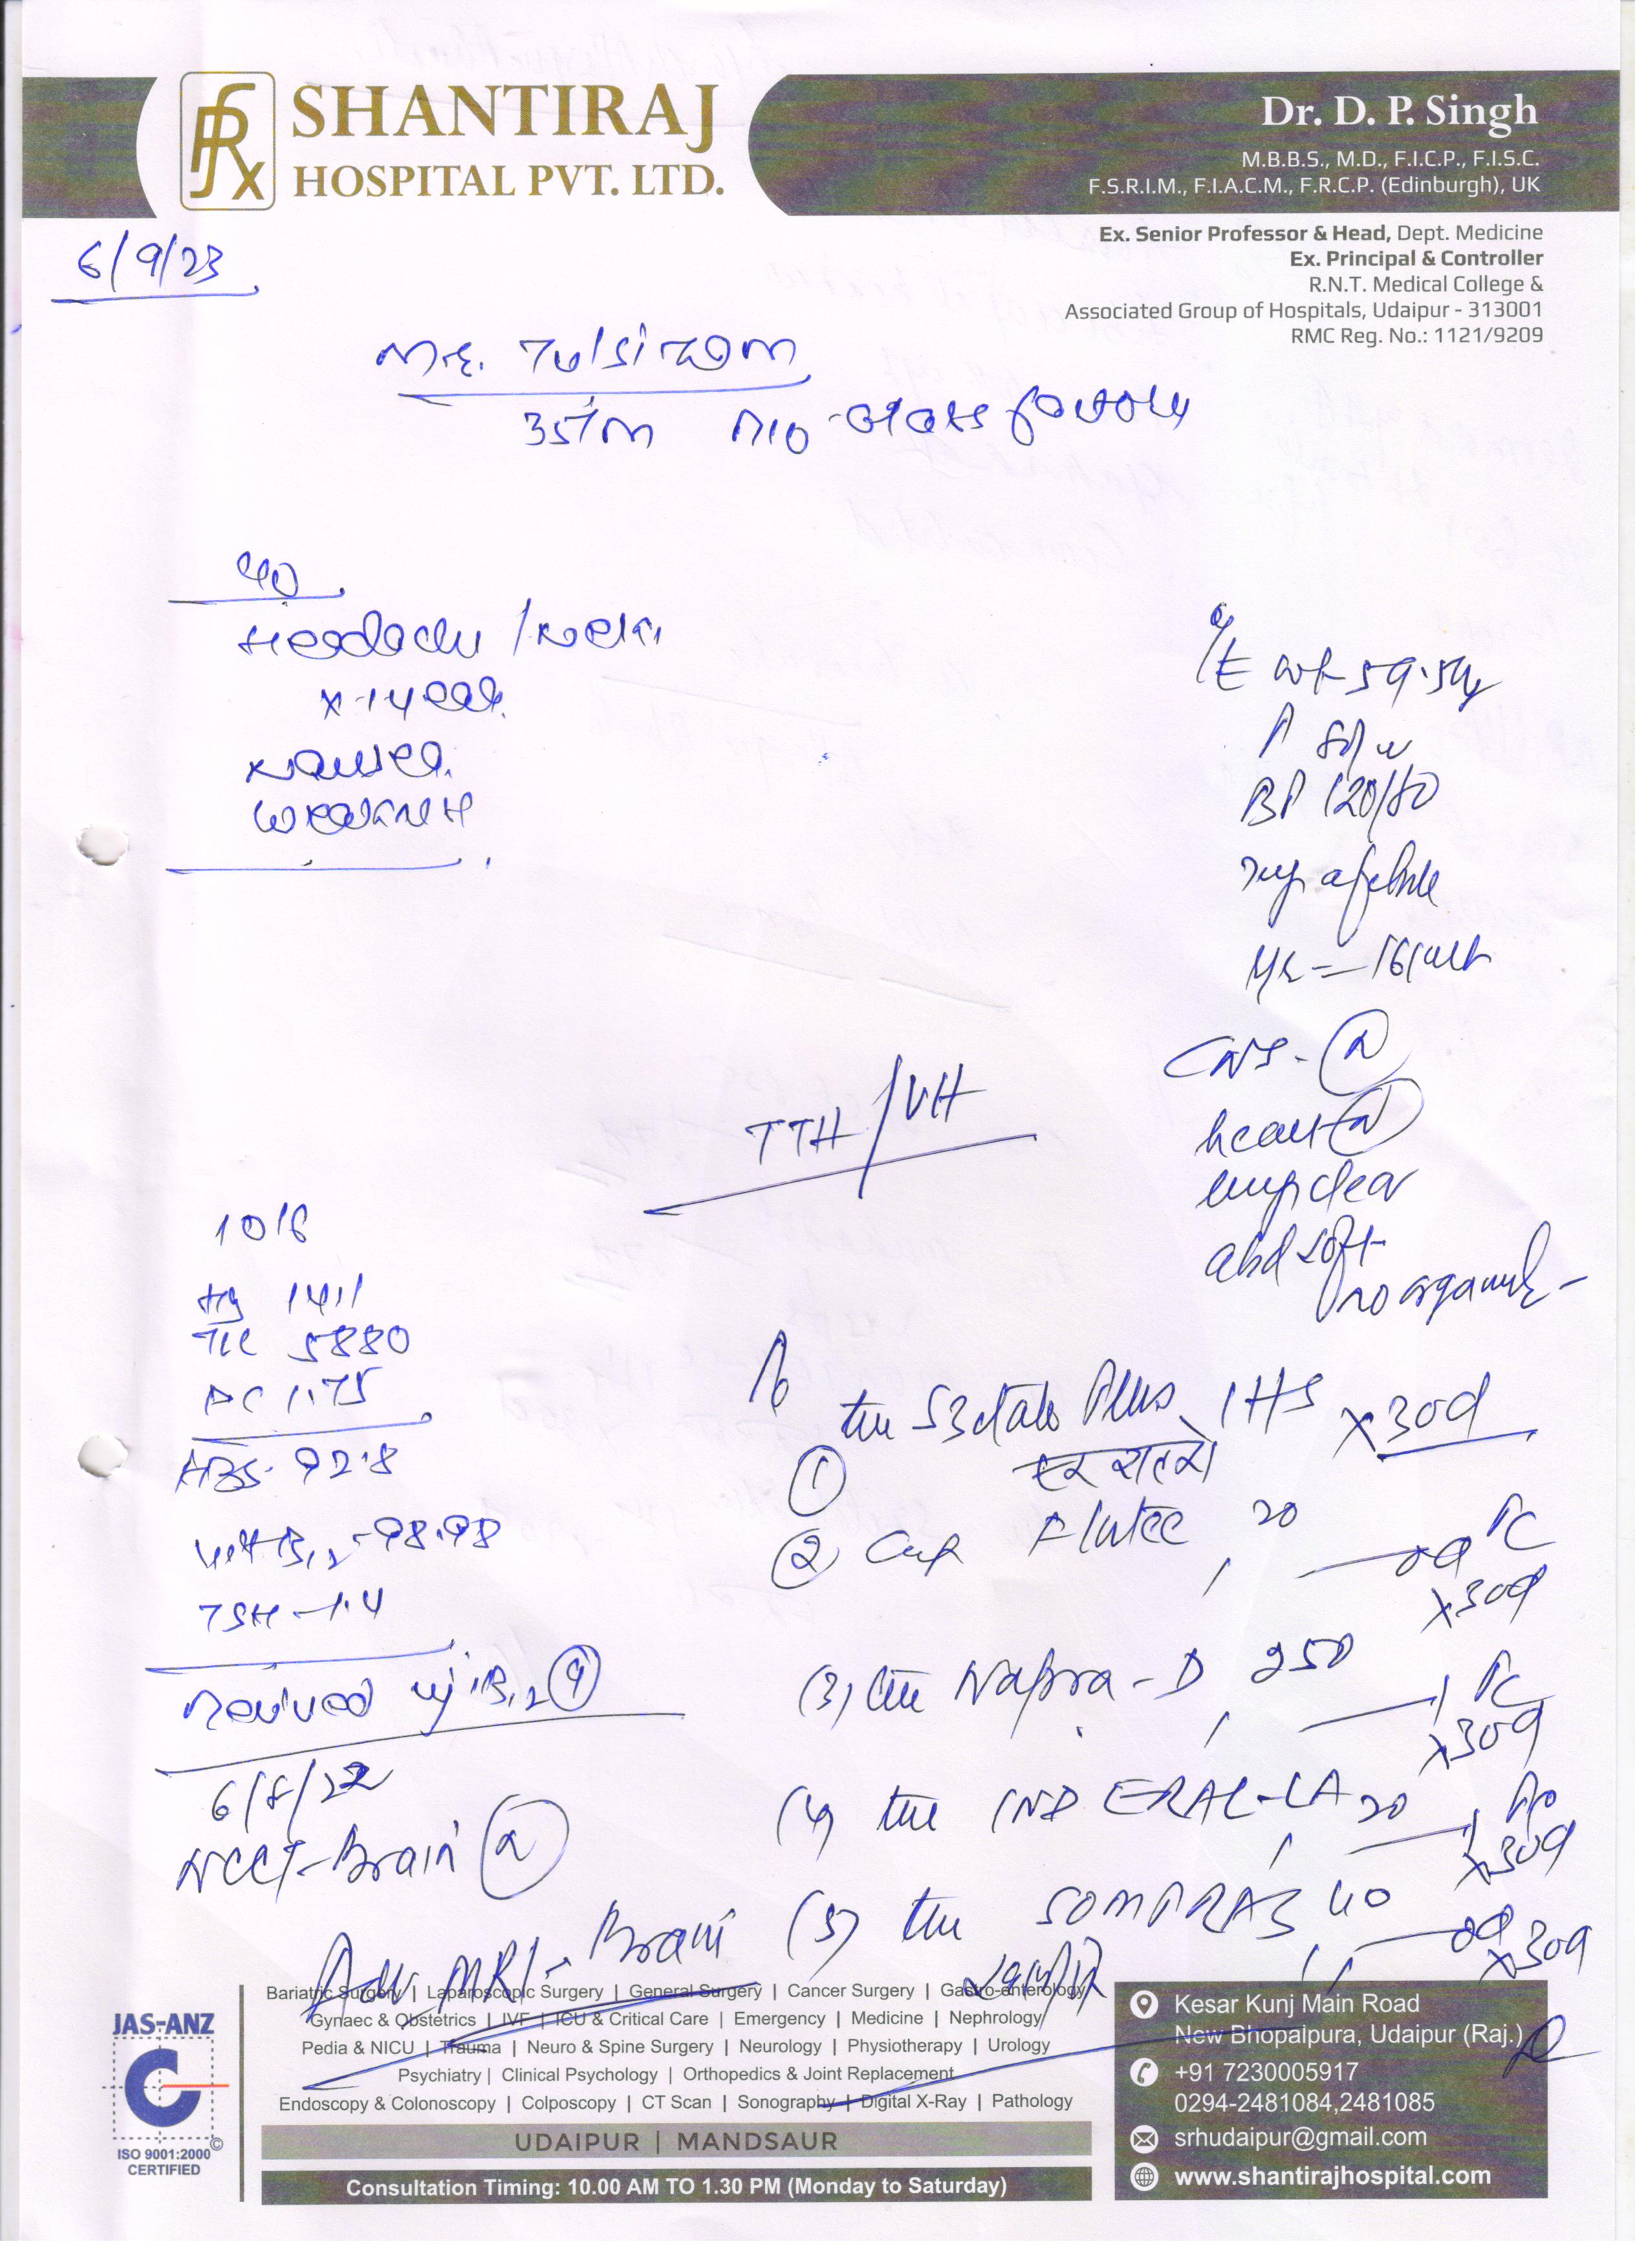 SHANTIRAJ
HOSPITAL PVT. LTD.
Dr. D. P. Singh
M.B.B.S., M.D., F.I.C.P., F.I.S.C.
F.S.R.I.M., F.I.A.C.M., F.R.C.P. (Edinburgh), UK
Ex. Senior Professor & Head, Dept. Medicine
Ex. Principal & Controller
R.N.T. Medical College &
Associated Group of Hospitals, Udaipur - 313001
RMC Reg. No.: 1121/9209
6/9/23
Mr. Tulsiram
35/m R/o - Glass factory
c/o
Headache /
x 1 year
Nausea
Weakness
O/E Wt 59.5kg
P 80/
BP 120/80
afebrile
CNS - N
heart N
lungs clear
abd soft
no
TTH/VH
10/6
Hg 14.1
TLC 5880
PC 1.75
92.8
Vit B12 - 98.98
TSH - 1.4
Received inj B12
6/8/22
NCCT-Brain N
Adv MRI - Brain
Plus 1 HS x30d
①
② Cap Flutec 20 OD PC
x30d
(3) Napra-D 250 1 PC
x30d
(4) INDERAL-LA 20
x30d
(5) SOMPRAZ 40 OD
x30d
Bariatric Surgery | Laparoscopic Surgery | General Surgery | Cancer Surgery | Gastro-enterology
Gynaec & Obstetrics | IVF | ICU & Critical Care | Emergency | Medicine | Nephrology
Pedia & NICU | Trauma | Neuro & Spine Surgery | Neurology | Physiotherapy | Urology
Psychiatry | Clinical Psychology | Orthopedics & Joint Replacement
Endoscopy & Colonoscopy | Colposcopy | CT Scan | Sonography | Digital X-Ray | Pathology
UDAIPUR | MANDSAUR
Consultation Timing: 10.00 AM TO 1.30 PM (Monday to Saturday)
JAS-ANZ
C
ISO 9001:2000
CERTIFIED
Kesar Kunj Main Road
New Bhopalpura, Udaipur (Raj.)
+91 7230005917
0294-2481084,2481085
srhudaipur@gmail.com
www.shantirajhospital.com